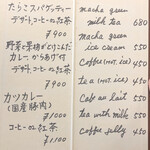 たらこスパゲッティー
デザート コーヒーor紅茶
¥900
野菜と果物がとけこんだ
カレー からあげ付
デザート コーヒーor紅茶
¥900
カツカレー
(国産豚肉) ¥1000
コーヒーor紅茶
¥1100
macha green
milk tea 680
macha green
ice cream 550
Coffee (HOT, ice) 450
tea (HOT, ice) 450
Cafe au lait 550
tea with milk 550
Coffee jelly 450